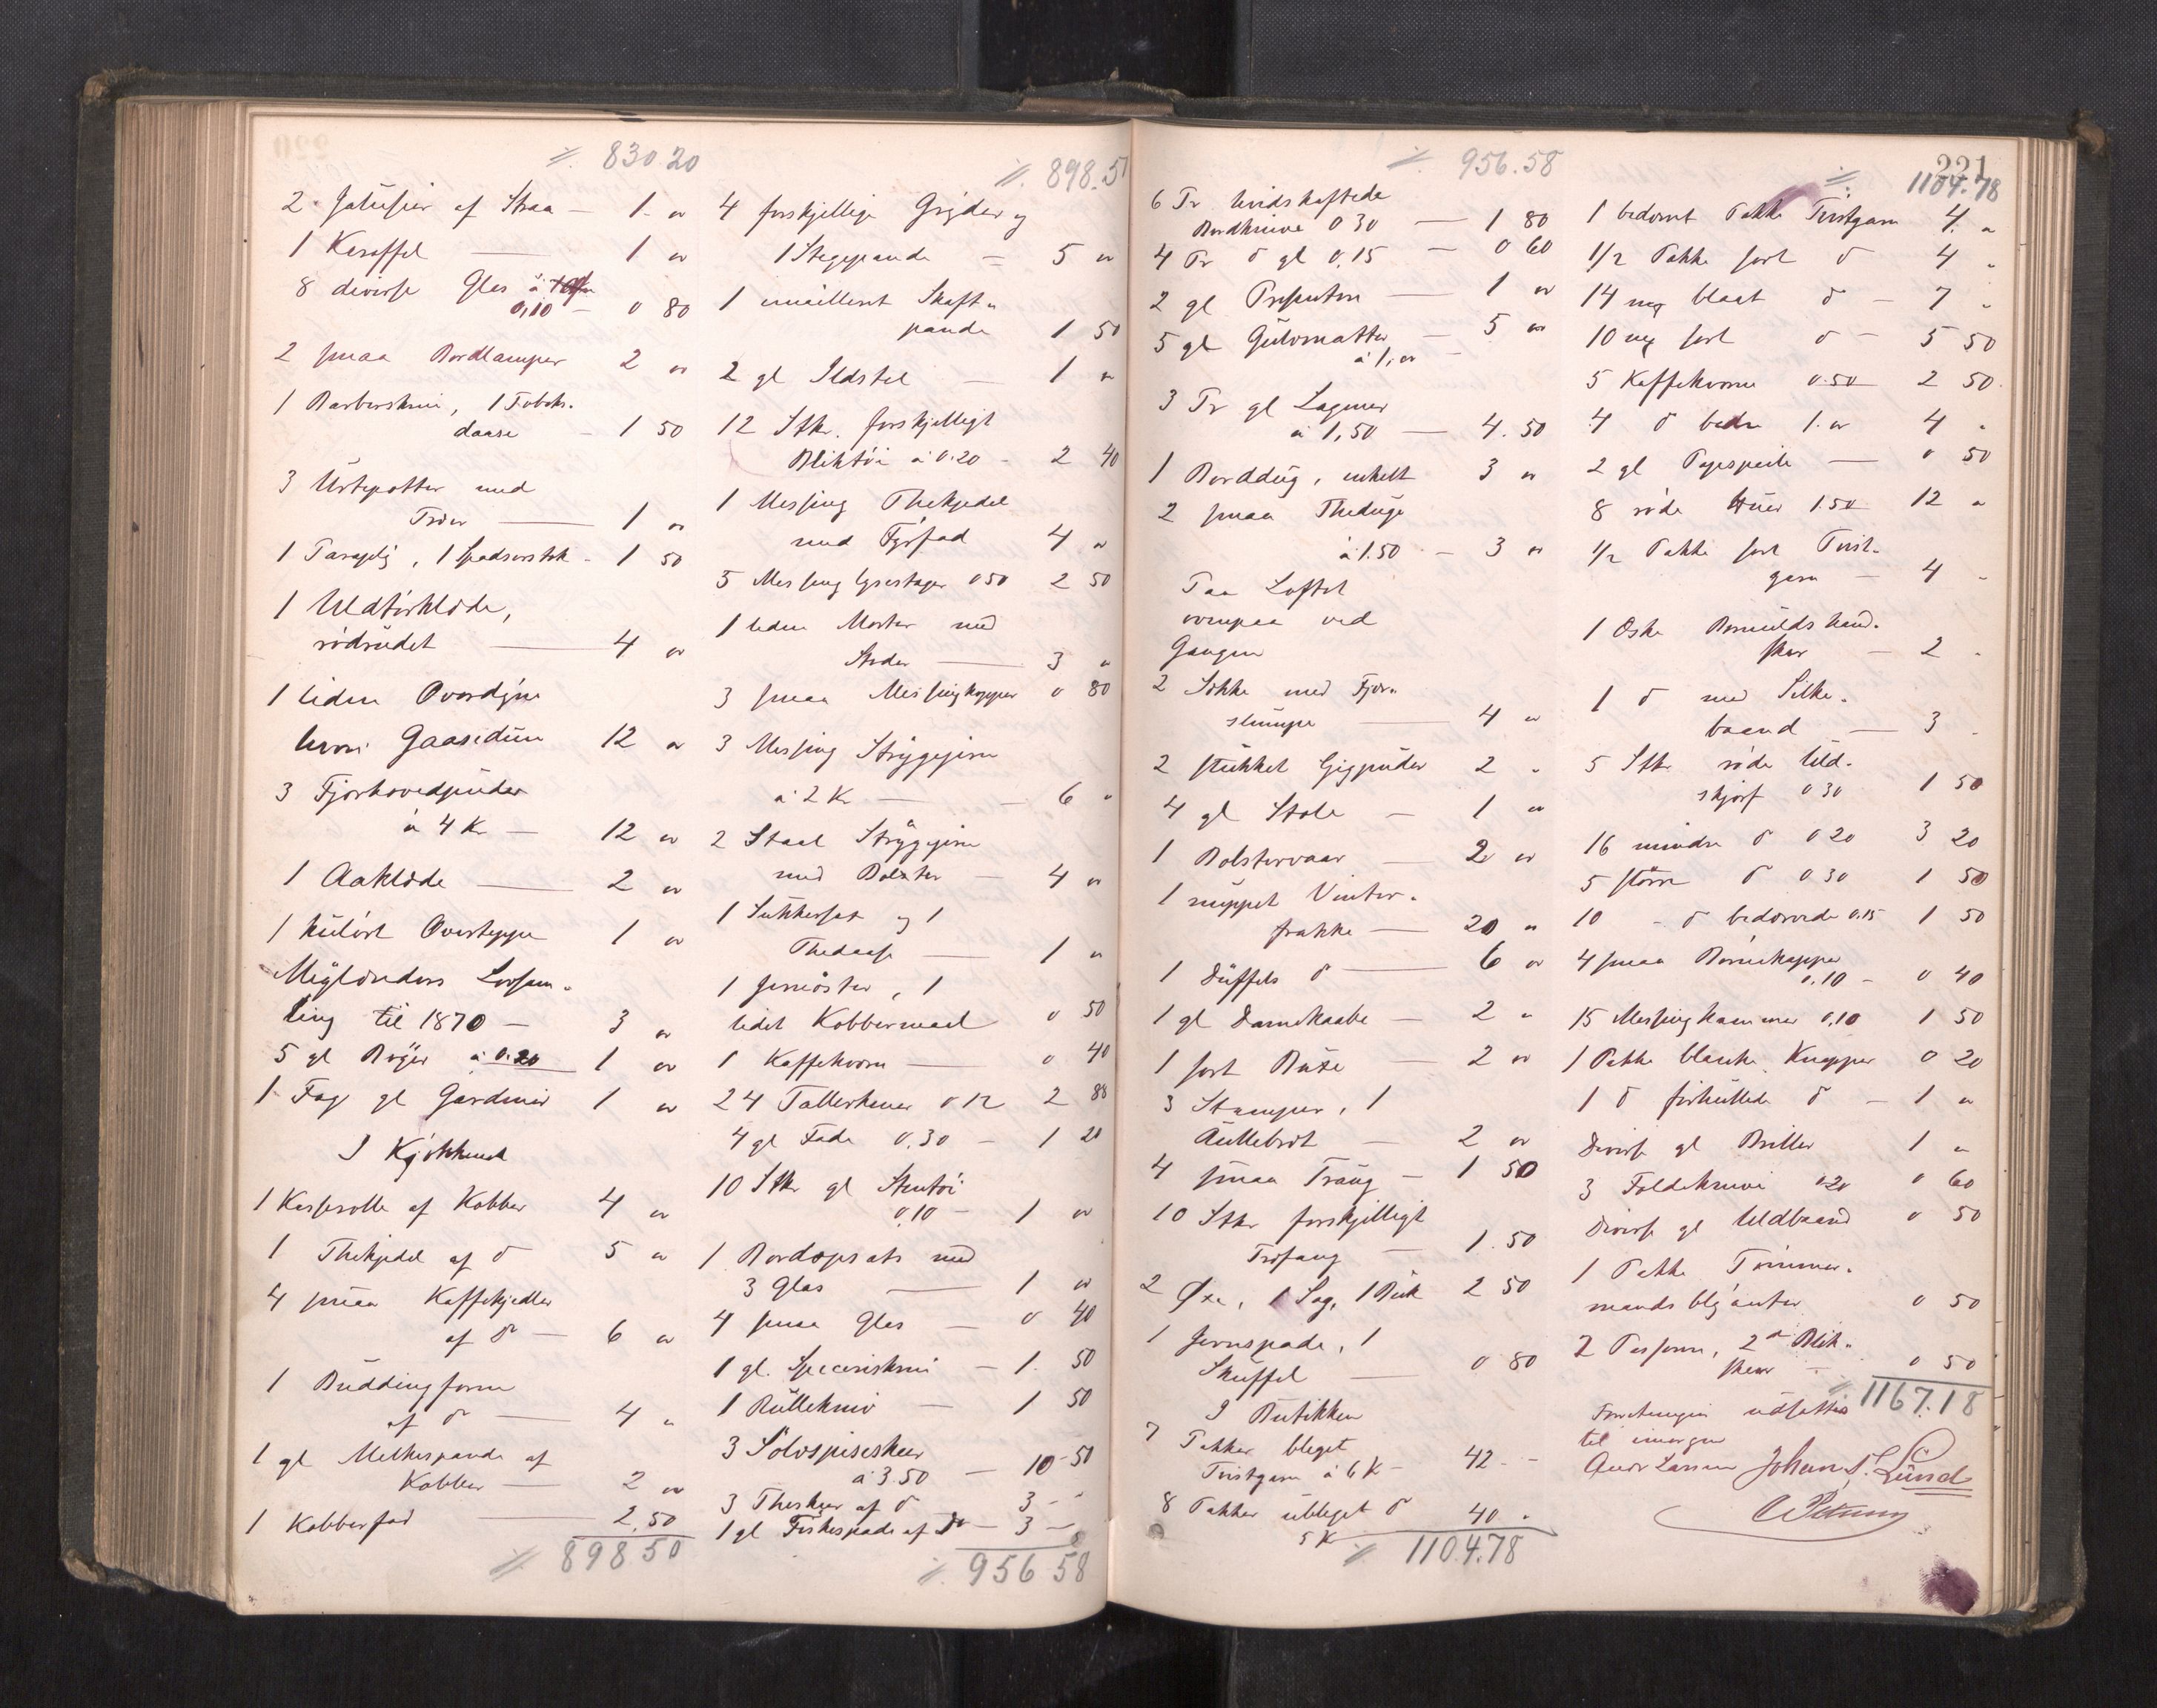 ٪ 830.20
2 Jalusier af Straa – 1. "
1 Karaffel — 1 "
8 diverse Glas à
0,10 – 0 80
2 smaa Bordlamper 2 "
1 Barberskrin, 1 Tobaks-
daase – 1 50
3 Urtepotter med
Træer — 1 "
1 Paraply, 1 Spadserstok – 1 50
1 Uldtørklæde,
rødrudet — 4 "
1 liden Overdyne
hvori Gaasedun 12 "
3 Fjørhovedpuder
à 4 Kr — 12 "
1 Aaklæde — 2 "
1 kulørt Overteppe 1 "
Mejlænders Lovsam-
ling til 1870 – 3 "
5 gl Bøger à 0.20 1 "
1 Fag gl Gardiner 1 "
I Kjøkkenet
1 Kasserolle af Kobber 4 "
1 Thekjedel af do 5 "
4 smaa Kaffekjedler
af do – 6 "
1 Buddingform
af do — 4 "
1 gl Melkespande af
Kobber — 2 "
1 Kobberfad — 2,50
٪ 898 50
٪ 898.5
4 forskjellige Gryder og
1 Stegepande – 5 "
1 emailleret Skaft-
pande 1 50
2 gl Ildstel — 1 "
12 Stkr. forskjelligt
Bliktøi à 0.20 – 2 40
1 Messing Thekjedel
med Fyrfad 4 "
5 Messing Lysestager 0 50 2 50
1 liden Morter med
Støder — 3 "
3 smaa Messingkopper 0 80
3 Messing Strygejern
à 2 Kr — 6 "
2 Staal Strygejern
med Bolster – 4 "
1 Sukkersax og 1
Thedaase — 1 "
1 Jernmorter, 1
lidet Kobbermaal 0 50
1 Kaffekværn — 0 40
24 Tallerkener 0 12 2 88
4 gl Fade 0,30 – 1 20
10 Stkr gl Stentøi
0,10 – 1 "
1 Bordopsats med
3 Glas — 1 "
4 smaa Glas — 0 40
1 gl. Specieriskrin – 1. 50
1 Rullekniv — 1 50
3 Sølvspiseskeer
à 3.50 — 10 50
3 Theskeer af do 3 –
1 gl Fiskespade af Do – 3 –
٪ 956 58
٪ 956.58
6 Pr hvidskaftede
Bordknive 0 30 — 1 80
4 Pr do gl 0,15 – 0 60
2 gl Presenter — 1 "
5 gl Gulvmatter — 5 "
à 1,"
3 Pr gl Lagener
à 1,50 — 4.50
1 Borddug, enkelt 3 "
2 smaa Theduge
à 1.50 – 3 "
Paa Loftet
ovenpaa ved
Gangen
2 Sække med Fjær-
slumpe — 4 "
2 stukket Gigpuder 2 "
4 gl Stole — 1 "
1 Bolstervaar — 2 "
1 nuppet Vinter-
frakke — 20 "
1 Duffels do — 6 "
1 gl Damekaabe – 2 "
1 sort Buxe — 2 "
3 Stamper, 1
Rullebræt — 2 "
4 smaa Traug – 1 50
10 Stkr forskjelligt
Træfang — 1.50
2 Øxe, 1 Sag, 1 Buk 2 50
1 Jernspade, 1
Skuffel — 0 80
I Butikken
7 Pakker bleget
Tvistgarn à 6 K – 42 –
8 Pakker ubleget do 40 "
5 K
٪ 1104.78
221
٪ 1104.78
1 bedærvet Pakke Tvistgarn 4. "
1/2 Pakke sort do 4 "
14 mg blaat do – 7 "
10 mg sort do – 5 50
5 Kaffekværne 0.50 2 50
4 do bedre 1." 4 "
2 gl Papespeile — 0 50
8 røde Huer 1.50 12 "
1/2 Pakke sort Tvist-
garn — 4 –
1 Æske Bomulds hand-
sker — 2 –
1 do med Silke-
baand — 3 –
5 Stk røde Uld-
skjørf 0 30 1 50
16 mindre do 0 20 3 20
5 større do 0 30 1 50
10 – do bedærvede 0.15 1 50
4 smaa Børnekapper
0.10 – 0 40
15 Messingkammer 0,10 1 50
1 Pakke blanke Knapper 0 20
1 do forhullede do – 1 "
Diverse gl Briller 1 "
3 Foldeknive 0.20 0 60
Diverse gl Uldbaand 0 50
1 Pakke Tømmer-
mandsblyanter 0 50
2 Passere, 2 Blik-
skeer — 0 50
٪ 1167.18
Forretningen udsattes
til imorgen
Andr Larsen Johan L. Lund